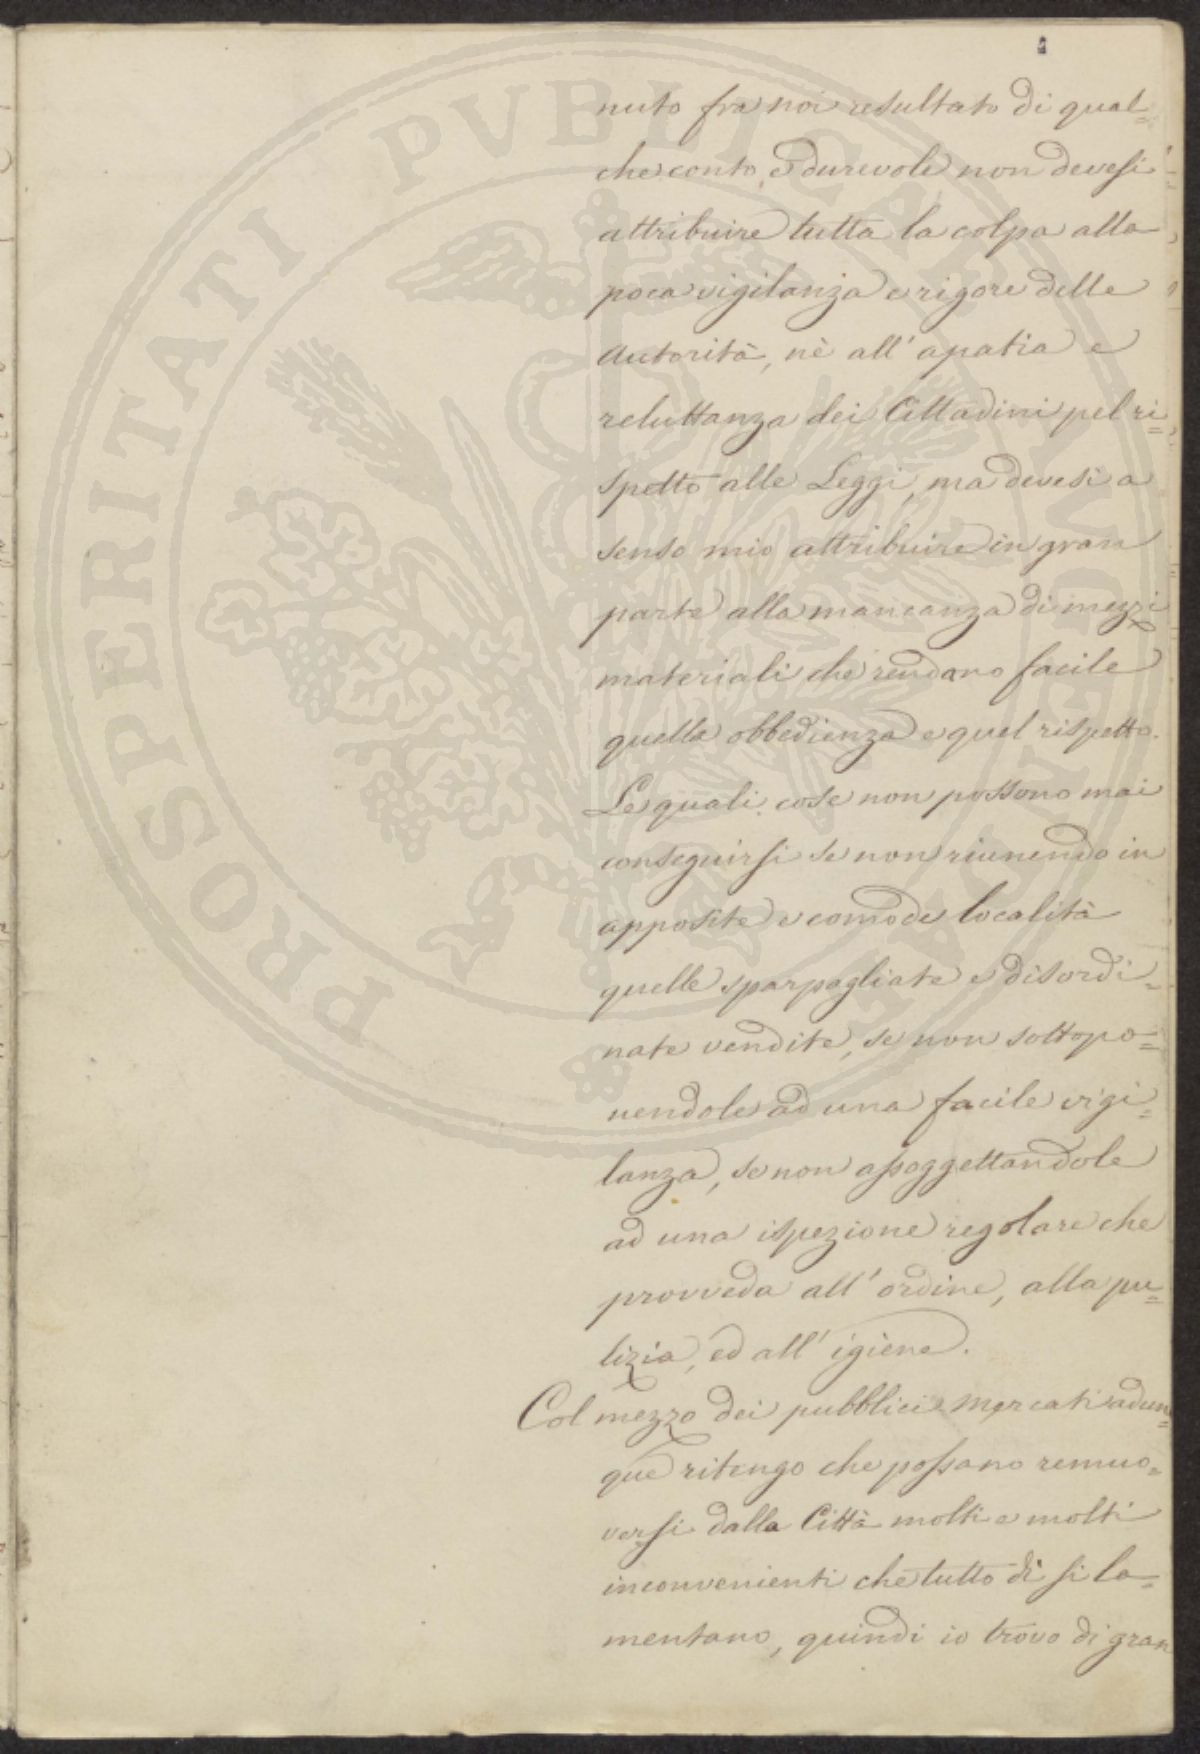 PROSPERITATI PVBLICAE AVGENDAE
nuto fra noi resultato di qual=
che conto, e durevole non devesi
attribuire tutta la colpa alla
poca vigilanza e rigore delle
Autorità, nè all' apatia e
reluttanza dei Cittadini pel ri=
spetto alle Leggi, ma devesi a
senso mio attribuire in gran
parte alla mancanza di mezzi
materiali che rendano facile
quella obbedienza e quel rispetto.
Le quali cose non possono mai
conseguirsi se non riunendo in
apposite e comode località
quelle sparpagliate e disordi=
nate vendite, se non sottopo=
nendole ad una facile vigi=
lanza, se non assoggettandole
ad una ispezione regolare che
provveda all' ordine, alla pu=
lizia, ed all' igiène.
Col mezzo dei pubblici Mercati adun=
que ritengo che possano remuo=
versi dalla Città molti e molti
inconvenienti che tutto dì si la=
mentano, quindi io trovo di gran